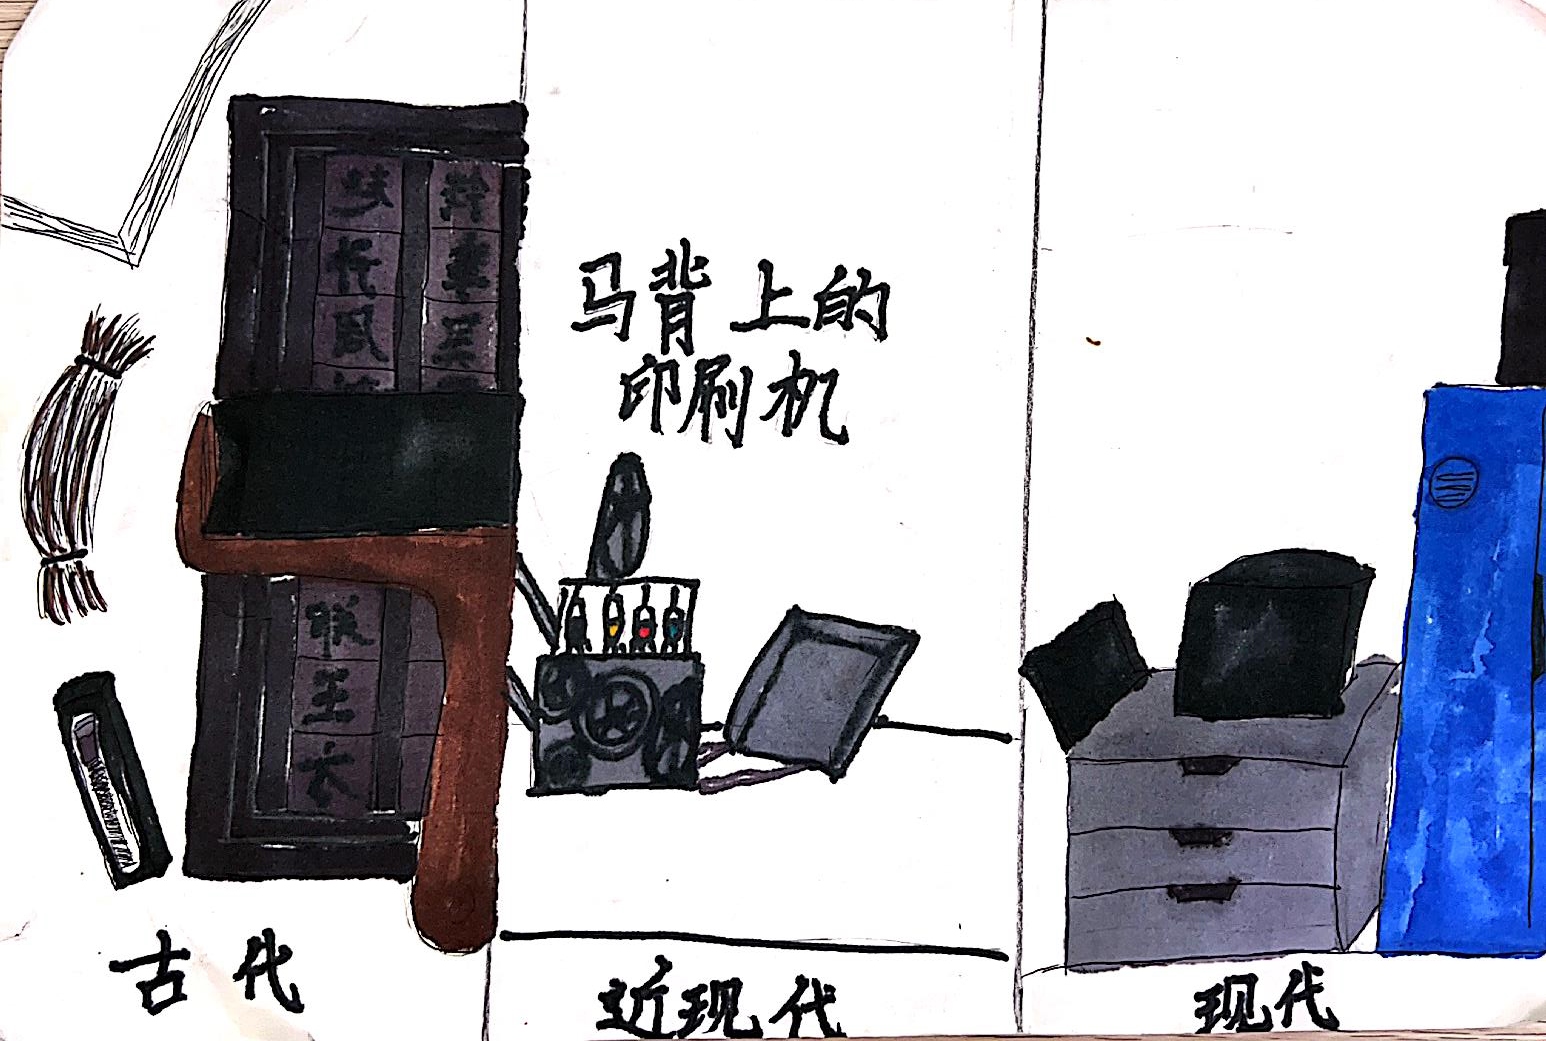 马背上的
印刷机
古代
近现代
现代